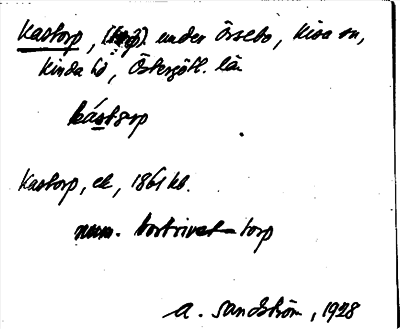 Kastorp, (torp) under Örsebo, Kisa sn,
Kinda hd, Östergötl. län
kást𝑜rp
Kastorp, ek, 1861 kb.
num. bortrivet torp
A. Sandström, 1928